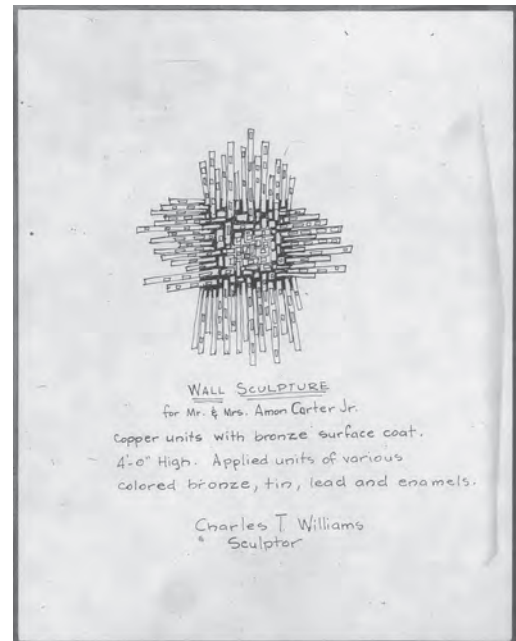 WALL SCULPTURE
for Mr. & Mrs. Amon Carter Jr.
Copper units with bronze surface coat.
4'-0" High. Applied units of various
colored bronze, tin, lead and enamels.
Charles T Williams
Sculptor